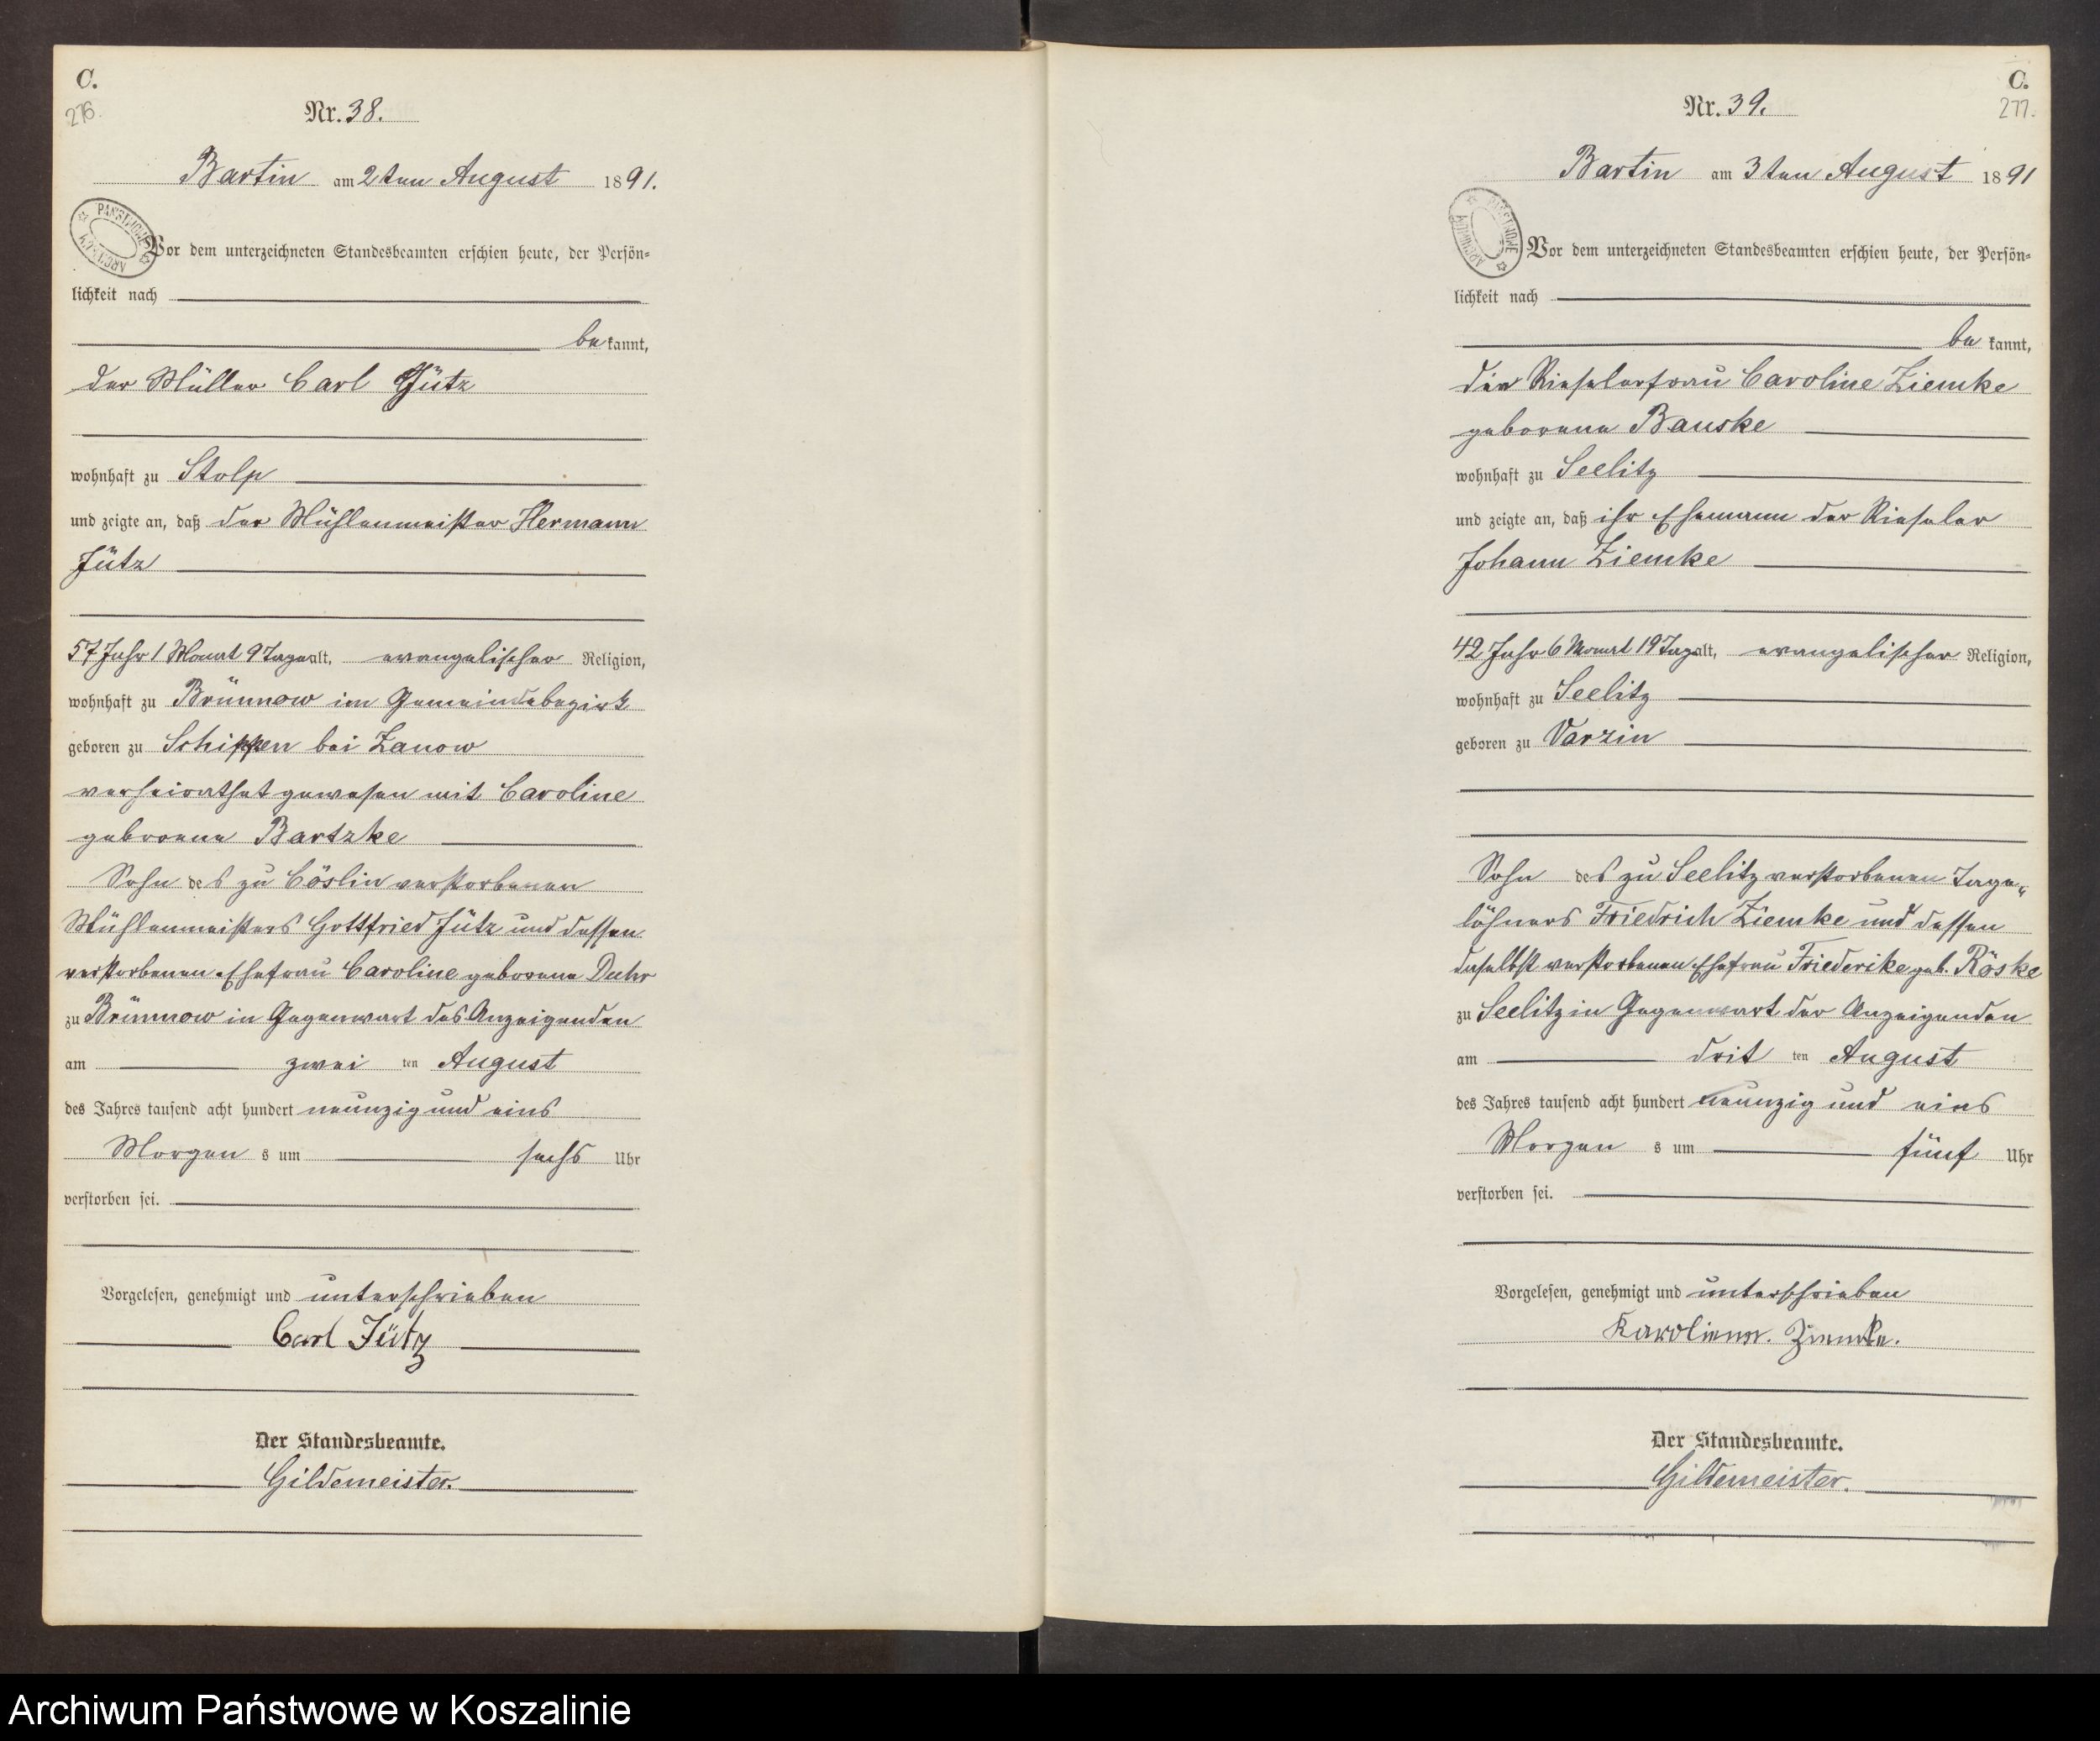 C.
276.
Nr. 38.
Bartin am 2ten August 1891.
PAŃSTWOWE
ARCHIWUM
Vor dem unterzeichneten Standesbeamten erschien heute, der Persön-
lichkeit nach
bekannt,
der Müller Carl Jütz
wohnhaft zu Stolp
und zeigte an, daß der Mühlenmeister Hermann
Jütz
57 Jahr 1 Monat 9 Tage alt, evangelischer Religion,
wohnhaft zu Brünnow im Gemeindebezirk
geboren zu Schippen bei Zanow
verheirathet gewesen mit Caroline
geborene Bartzke
Sohn des zu Cöslin verstorbenen
Mühlenmeisters Gottfried Jütz und dessen
verstorbenen Ehefrau Caroline geborene Duhr
zu Brünnow in Gegenwart des Anzeigenden
am zwei ten August
des Jahres tausend acht hundert neunzig und eins
Morgen s um sechs Uhr
verstorben sei.
Vorgelesen, genehmigt und unterschrieben
Carl Jütz
Der Standesbeamte.
Gildemeister.
C.
277.
Nr. 39.
Bartin am 3ten August 1891
PAŃSTWOWE
ARCHIWUM
Vor dem unterzeichneten Standesbeamten erschien heute, der Persön-
lichkeit nach
be kannt,
die Rieselerfrau Caroline Ziemke
geborene Bauske
wohnhaft zu Seelitz
und zeigte an, daß ihr Ehemann der Rieseler
Johann Ziemke
42 Jahr 6 Monat 19 Tag alt, evangelischer Religion,
wohnhaft zu Seelitz
geboren zu Varzin
Sohn des zu Seelitz verstorbenen Tage-
löhners Friedrich Ziemke und dessen
daselbst verstorbenen Ehefrau Friederike geb. Röske
zu Seelitz in Gegenwart der Anzeigenden
am drit ten August
des Jahres tausend acht hundert neunzig und eins
Morgen s um fünf Uhr
verstorben sei.
Vorgelesen, genehmigt und unterschrieben
Karoliene. Ziemke.
Der Standesbeamte.
Gildemeister.
Archiwum Państwowe w Koszalinie